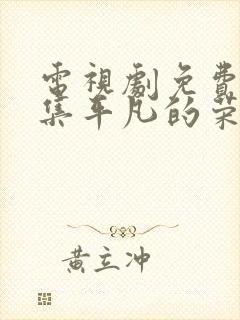 電視劇免費
集平凡的榮
黃立冲